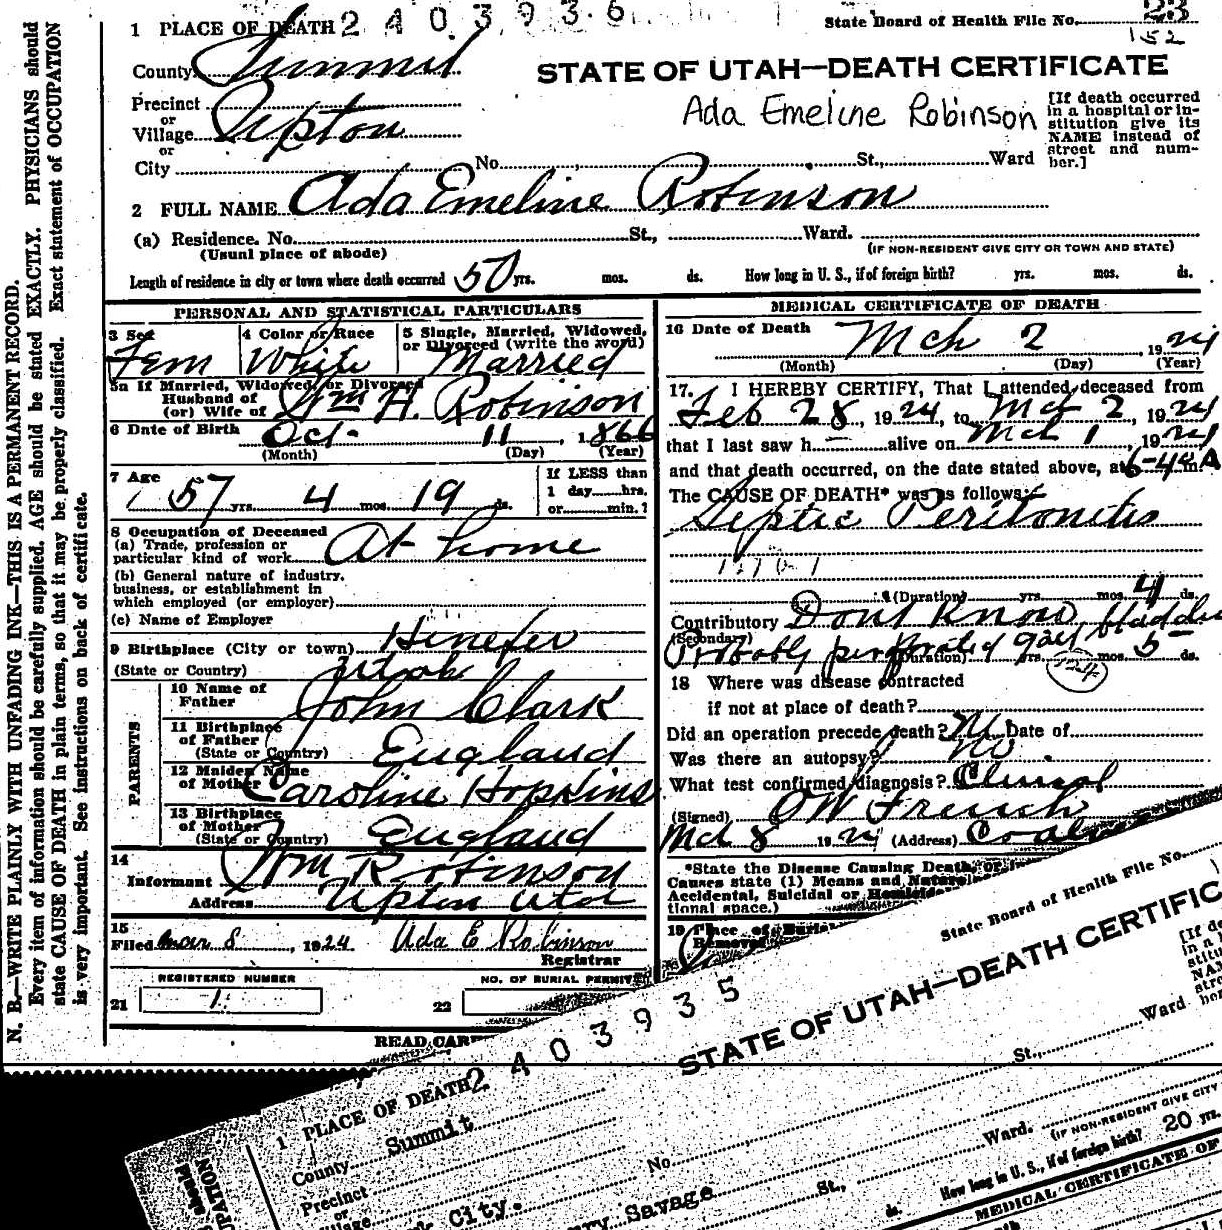 1 PLACE OF DEATH 2 4 0 3 9 3 6
State Board of Health File No. 23
152
County Summit
STATE OF UTAH—DEATH CERTIFICATE
Precinct
or
Village Upton
or
City No. St., Ward
Ada Emeline Robinson
[If death occurred
in a hospital or in-
stitution give its
NAME instead of
street and num-
ber.]
2 FULL NAME Ada Emeline Robinson
(a) Residence. No. St., Ward.
(Usual place of abode)
(IF NON-RESIDENT GIVE CITY OR TOWN AND STATE)
Length of residence in city or town where death occurred 50 yrs. mos. ds. How long in U. S., if of foreign birth? yrs. mos. ds.
PERSONAL AND STATISTICAL PARTICULARS
3 Sex
Fem
4 Color or Race
White
5 Single, Married, Widowed,
or Divorced (write the word)
Married
5a If Married, Widowed, or Divorced
Husband of
(or) Wife of Wm H. Robinson
6 Date of Birth Oct. 11, 1866
(Month) (Day) (Year)
7 Age
57 yrs. 4 mos. 19 ds.
If LESS than
1 day......hrs.
or......min.?
8 Occupation of Deceased
(a) Trade, profession or
particular kind of work At home
(b) General nature of industry,
business, or establishment in
which employed (or employer)
(c) Name of Employer
9 Birthplace (City or town) Henefer
(State or Country) Utah
PARENTS
10 Name of
Father John Clark
11 Birthplace
of Father
(State or Country) England
12 Maiden Name
of Mother Caroline Hopkins
13 Birthplace
of Mother
(State or Country) England
14
Informant Wm Robinson
Address Upton Utah
15
Filed Mar 8, 1924 Ada E Robinson
Registrar
REGISTERED NUMBER
21 1
NO. OF BURIAL PERMIT
22
READ CAR
MEDICAL CERTIFICATE OF DEATH
16 Date of Death Mch 2, 1924
(Month) (Day) (Year)
17. I HEREBY CERTIFY, That I attended deceased from
Feb 28, 1924, to Mch 2, 1924
that I last saw h — alive on Mch 1, 1924
and that death occurred, on the date stated above, at 6-44 A m.
The CAUSE OF DEATH* was as follows:
Septic Peritonitis
(Duration) yrs. mos. 4 ds.
Contributory Dont Know
(Secondary)
Probably perforated gall bladder
(Duration) yrs. mos. 5 ds.
18 Where was disease contracted
if not at place of death?
Did an operation precede death? No Date of
Was there an autopsy? No
What test confirmed diagnosis? Clinical
(Signed) OW French
Mch 8 1924 (Address) Coal
*State the Disease Causing Death, or in
Causes state (1) Means and Nature
Accidental, Suicidal or Homicide
tional space.)
19 Place of Burial
Removal
N. B.—WRITE PLAINLY WITH UNFADING INK—THIS IS A PERMANENT RECORD.
Every item of information should be carefully supplied. AGE should be stated EXACTLY. PHYSICIANS should
state CAUSE OF DEATH in plain terms, so that it may be properly classified. Exact statement of OCCUPATION
is very important. See instructions on back of certificate.
1 PLACE OF DEATH 2 4 0 3 9 3 5
State Board of Health File No.
STATE OF UTAH—DEATH CERTIFIC
County Summit
Precinct
or
City.
No. St., Ward
Savage
St., Ward.
(IF NON-RESIDENT GIVE CITY
ds. How long in U. S., if of foreign birth? 20 yrs.
MEDICAL CERTIFICATE OF